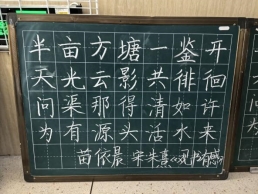 半亩方塘一鉴开
天光云影共徘徊
问渠那得清如许
为有源头活水来
苗依晨 宋朱熹《观书有感》